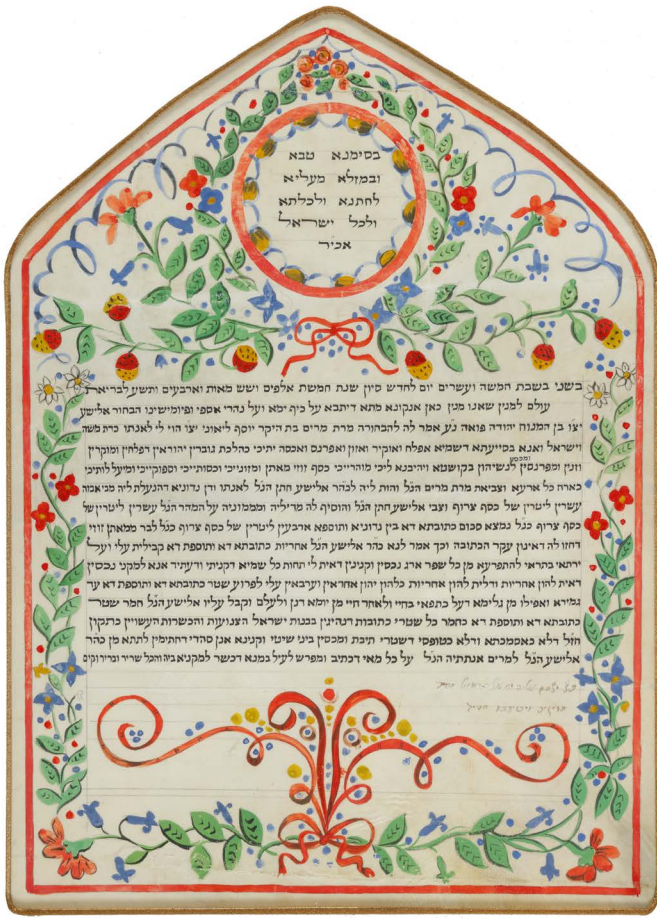 בסימנא טבא
ובמזלא מעליא
לחתנא ולכלתא
ולכל ישראל
אכיר
בשני בשבת חמשה ועשרים יום לחדש סיון שנת חמשת אלפים ושש מאות וארבעים ותשע לבריאת
עולם למנין שאנו מנין כאן אנקונא מתא דיתבא על כיף ימא ועל נהרי אספי ופיומישינו הבחור אלישע
יצו בן המנוח יהודה פואה נע אמר לה להבחורה מרת מרים בת היקר יוסף ליאוני יצו הוי לי לאנתו כדת משה
וישראל ואנא בסייעתא דשמיא אפלח ואוקיר ואזון ואפרנס ואכסה יתיכי כהלכת גוברין יהוראין דפלחין ומוקרין
ומכסין
וזנין ומפרנסין לנשיהון בקושטא ויהיבנא ליכי מוהרייכי כסף זוזי מאתן ומזוניכי וכסותייכי וספוקייכי ומיעל לותיכי
כארח כל ארעא וצביאת מרת מרים הנל והות ליה לכהר אלישע חתן הנל לאנתו ודן נדוניא דהנעלת ליה מבי אבוה
עשרין ליטרין של כסף צרוף וצבי אלישע חתן הנל והוסיף לה מדיליה וממוניה על המהר הנל עשרין ליטרין של
כסף צרוף כנל נמצא סכום כתובתא דא בין נדוניא ותוספא ארבעין ליטרין של כסף צרוף כנל לבר ממאתן זוזי
דחזו לה דאינון עקר הכתובה וכך אמר לנא כהר אלישע הנל אחריות כתובתא דא ותוספת דא קבילית עלי ועל
ירתאי בתראי להתפרעא מן כל שפר ארג נכסין וקנינין דאית לי תחות כל שמיא דקניתי ודעתיד אנא למקני נכסין
דאית להון אחריות ודלית להון אחריות כלהון יהון אחראין וערבאין עלי לפרוע שטר כתובתא דא ותוספת דא עד
גמירא ואפילו מן גלימא דעל כתפאי בחיי ולאחר חיי מן יומא דנן ולעלם וקבל עליו אלישע הנל חמר שטר
כתובתא דא ותוספת דא כחמר כל שטרי כתובות דנהיגין בבנות ישראל הצנועות והכשרות העשויין כתקון
חזל דלא כאסמכתא ודלא כטופסי דשטרי תיבת ומכסין ביני שיטי וקנינא אנן סהדי דחתימין לתתא מן כהר
אלישע הנל למרים אנתתיה הנל על כל מאי דכתיב ומפרש לעיל במנא דכשר למקניא ביה והכל שריר ובריר וקים